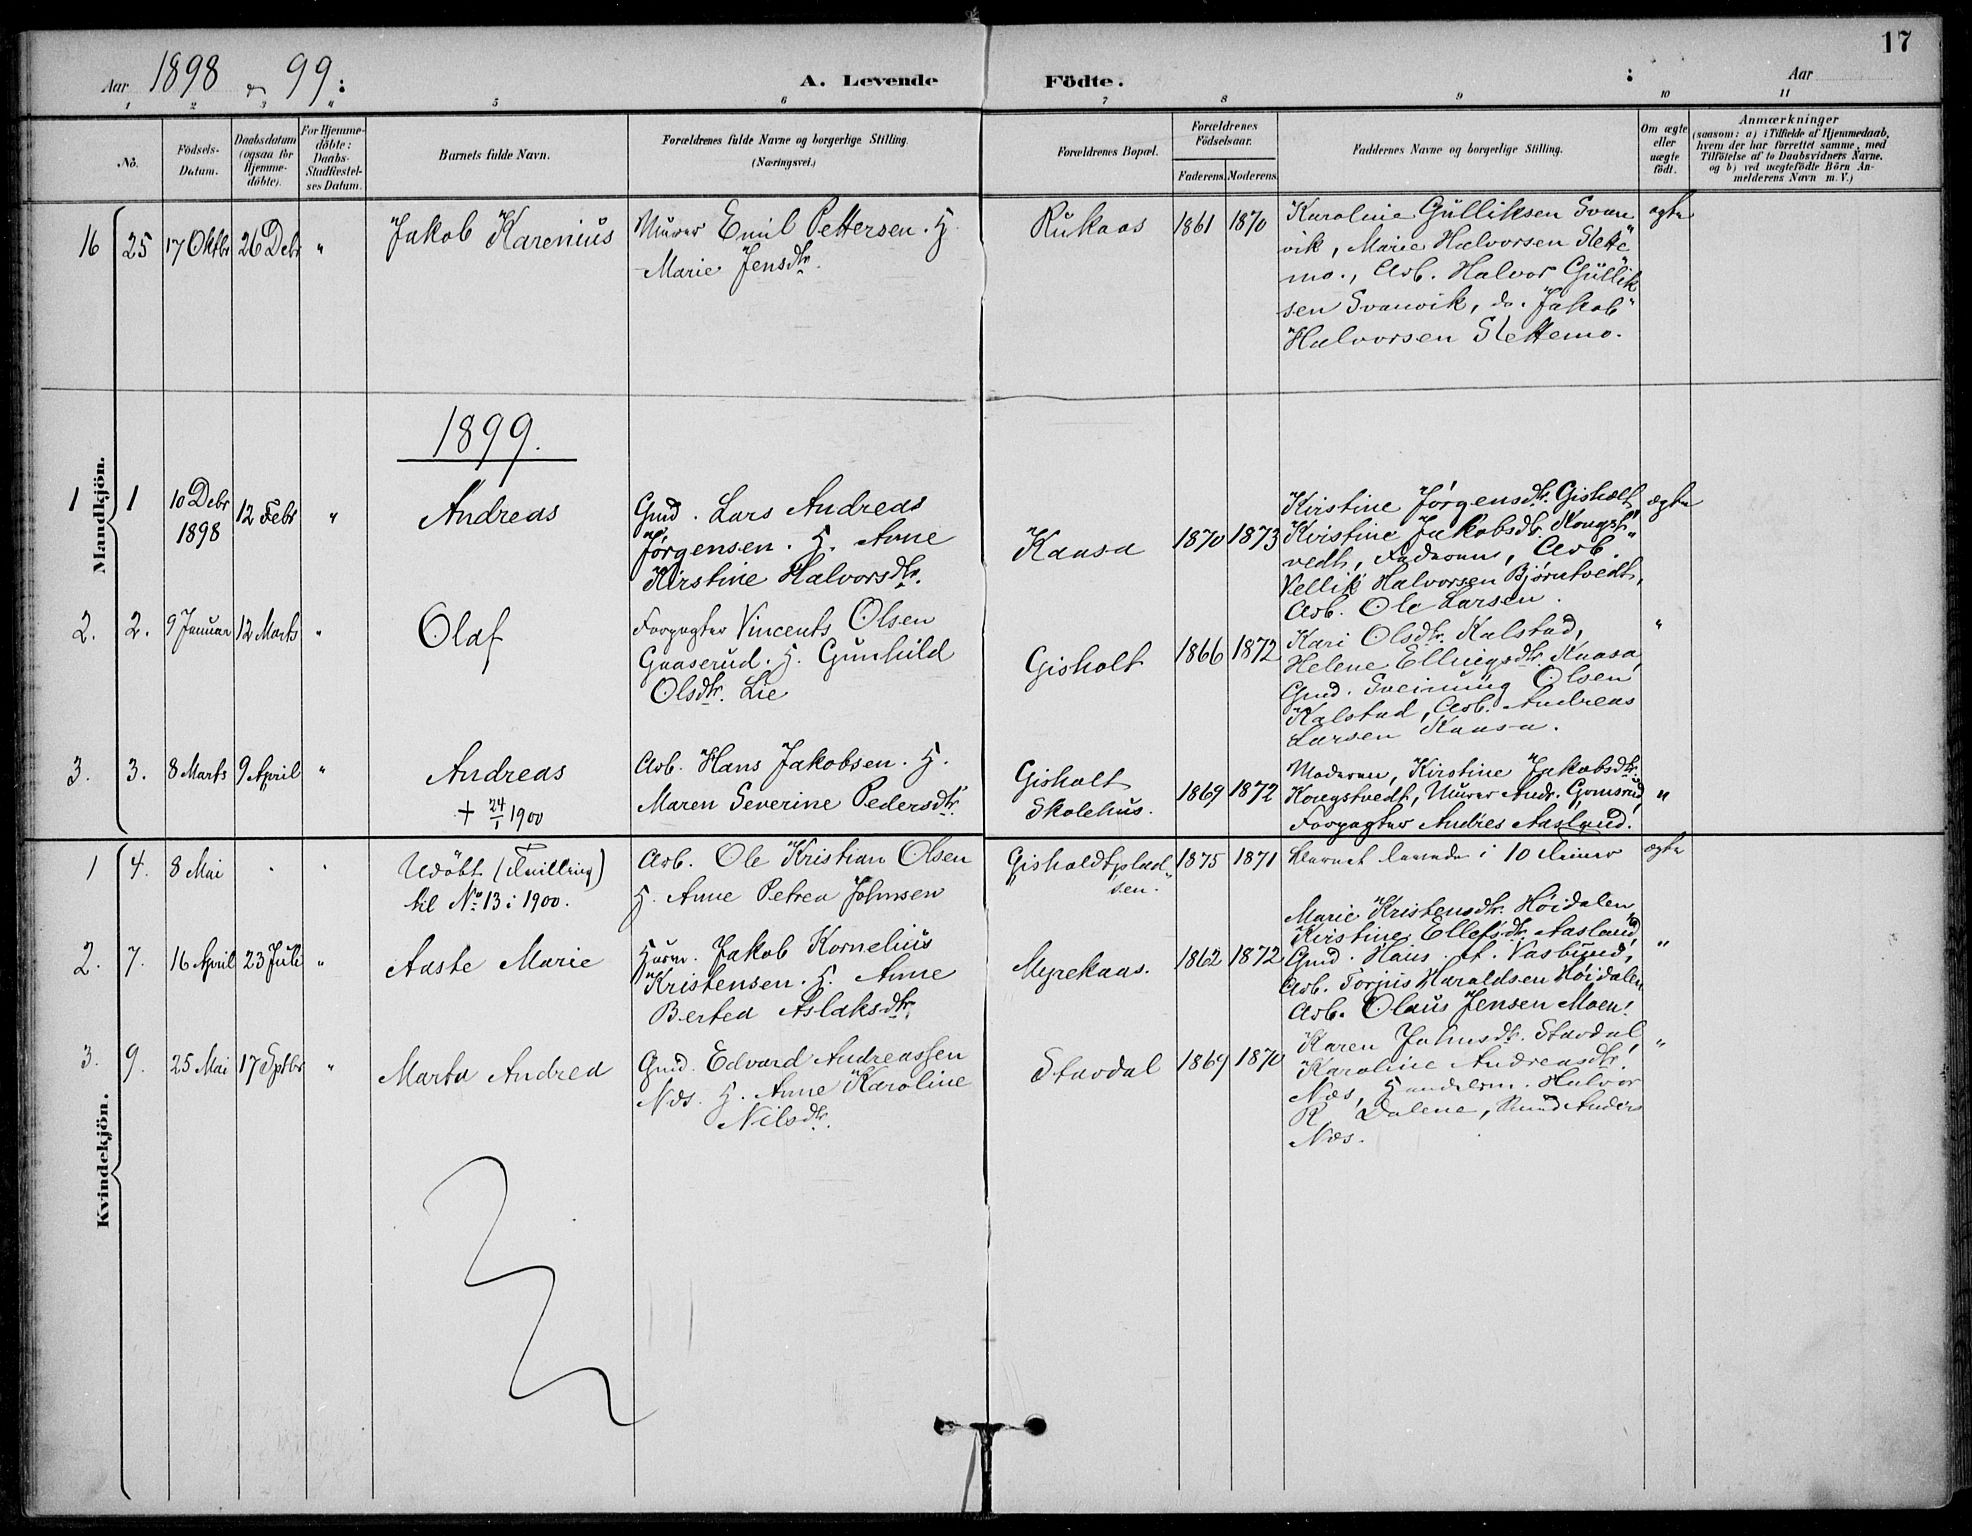 17
Aar 1898 og 99: A. Levende Födte. : Aar
1 2 3 4 5 6 7 8 9 10 11
No.
Födsels-Datum.
Daabsdatum (ogsaa for Hjemme-döbte).
For Hjemme-döbte: Daabs-Stadfæstel-ses Datum.
Barnets fulde Navn.
Forældrenes fulde Navne og borgerlige Stilling.
(Næringsvei.)
Forældrenes Bopæl.
Forældrenes Födselsaar.
Faderens. Moderens.
Faddernes Navne og borgerlige Stilling.
Om ægte eller uægte födt.
Anmærkninger
(saasom: a) i Tilfælde af Hjemmedaab,
hvem der har forrettet samme, med
Tilföielse af to Daabsvidners Navne.
og b) ved uægtefödte Börn An-
melderens Navn m. V.)
Mandkjön.
16 25 17 Oktbr 26 Debr " Jakob Karenius
Murer Emil Pettersen. H.
Marie Jensdtr.
Rukaas 1861 1870
Karoline Gulliksen Svan"
vik, Marie Halvorsen Slette"
mo., Arb. Halvor Gullik"
sen Svanvik, do. Jakob"
Halvorsen Slettemo.
ægte
1899.
1 1 10 Debr 1898 12 Febr " Andreas
Gmd. Lars Andreas
Jørgensen. H. Anne
Kirstine Halvorsdtr.
Kaasa 1870 1873
Kirstine Jørgensdtr. Gisholt,
Kristine Jakobsdtr. Kongst"
vedt, Faderen, Arb.
Vellik Halvorsen Bjørntvedt,
Arb. Ole Larsen.
ægte
2. 2. 9 Januar 12 Marts " Olaf
Forpagter Vincents Olsen
Gaaserud. H. Gunhild
Olsdtr. Lie
Gisholt 1866 1872
Kari Olsdtr. Kalstad,
Helene Ellingsdtr. Kaasa,
Gmd. Sveinung Olsen
Kalstad, Arb. Andreas
Larsen Kaasa.
"
3. 3. 8 Marts 9 April " Andreas
+ 24/1 1900
Arb. Hans Jakobsen. H.
Maren Severine Pedersdtr.
Gisholt
Skolehus.
1869 1872
Moderen, Kirstine Jakobsdtr.
Kongstvedt, Murer Andr. Gomsrud
Forpagter Andres Aasland.
"
Kvindekjön.
1 4. 8 Mai " " Udöbt (Tvilling)
til No 13 i 1900.
Arb. Ole Kristian Olsen
H. Anne Petrea Johnsen
Gisholdtplad"
sen.
1875 1871
Barnet levede i 10 Timer
ægte
2. 7. 16 April 23 Juli " Aaste Marie
Husm. Jakob Kornelius
Kristensen. H. Anne
Bertea Aslaksdtr.
Myrekaas. 1862 1872
Marie Kristensdtr. Höidalen
Kirstine Ellefsdtr. Aasland,
Gmd. Hans A. Vasbund,
Arb. Torjus Haraldsen Höidalen
Arb. Olaus Jensen Moen.
"
3. 9. 25 Mai 17 Septbr " Marta Andrea
Gmd. Edvard Andreassen
Næs. H. Anne Karoline
Nilsdtr.
Stavdal 1869 1870
Karen Johnsdtr. Stavdal,
Karoline Andreasdtr.
Næs, Handelsm. Halvor
R Dalene, Anders
Næs.
"